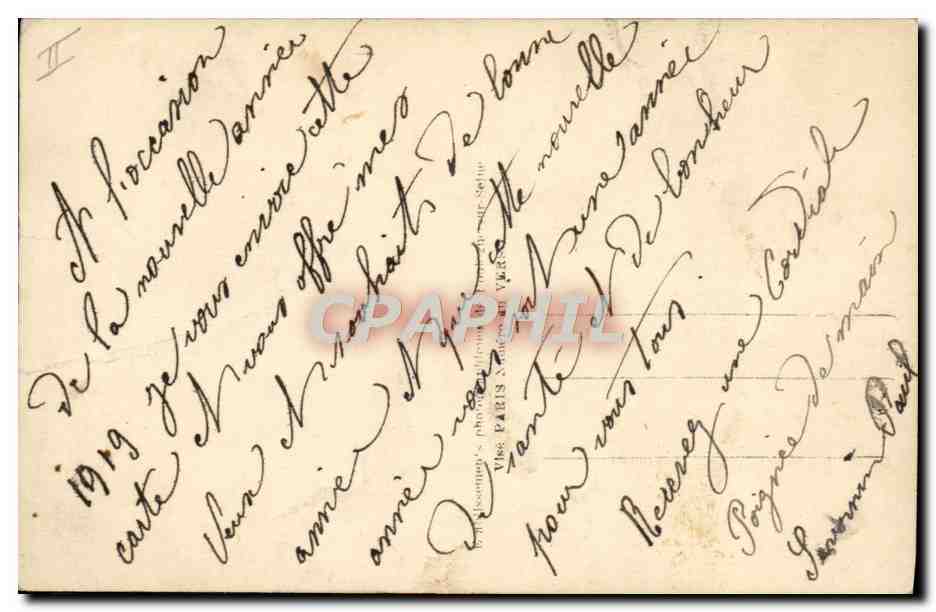 II
A l'occasion
de la nouvelle année
1919 Je vous envoie cette
carte & vous offre mes
veux & souhaits de bonne
année & que cette nouvelle
année vous soit une année
de santé et de bonheur
pour vous tous.
Recevez une Cordiale
Poignée de main
Paul
Visé PARIS
CPAPHIL